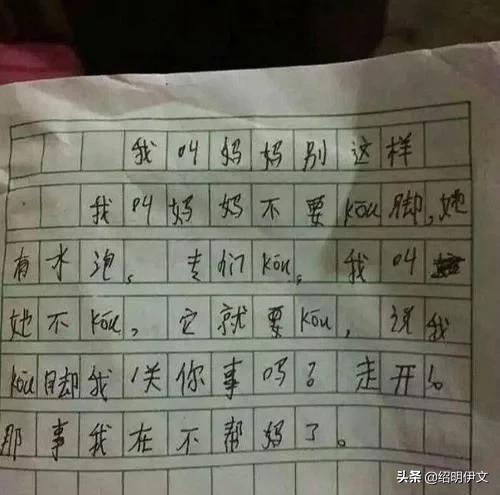 我叫妈妈别这样
我叫妈妈不要kōu脚,她
有水泡。专们kōu。我叫
她不kōu,它就要kōu,说我
kōu脚我关你事吗?走开!。
那事我在不帮妈了。
头条 @绍明伊文